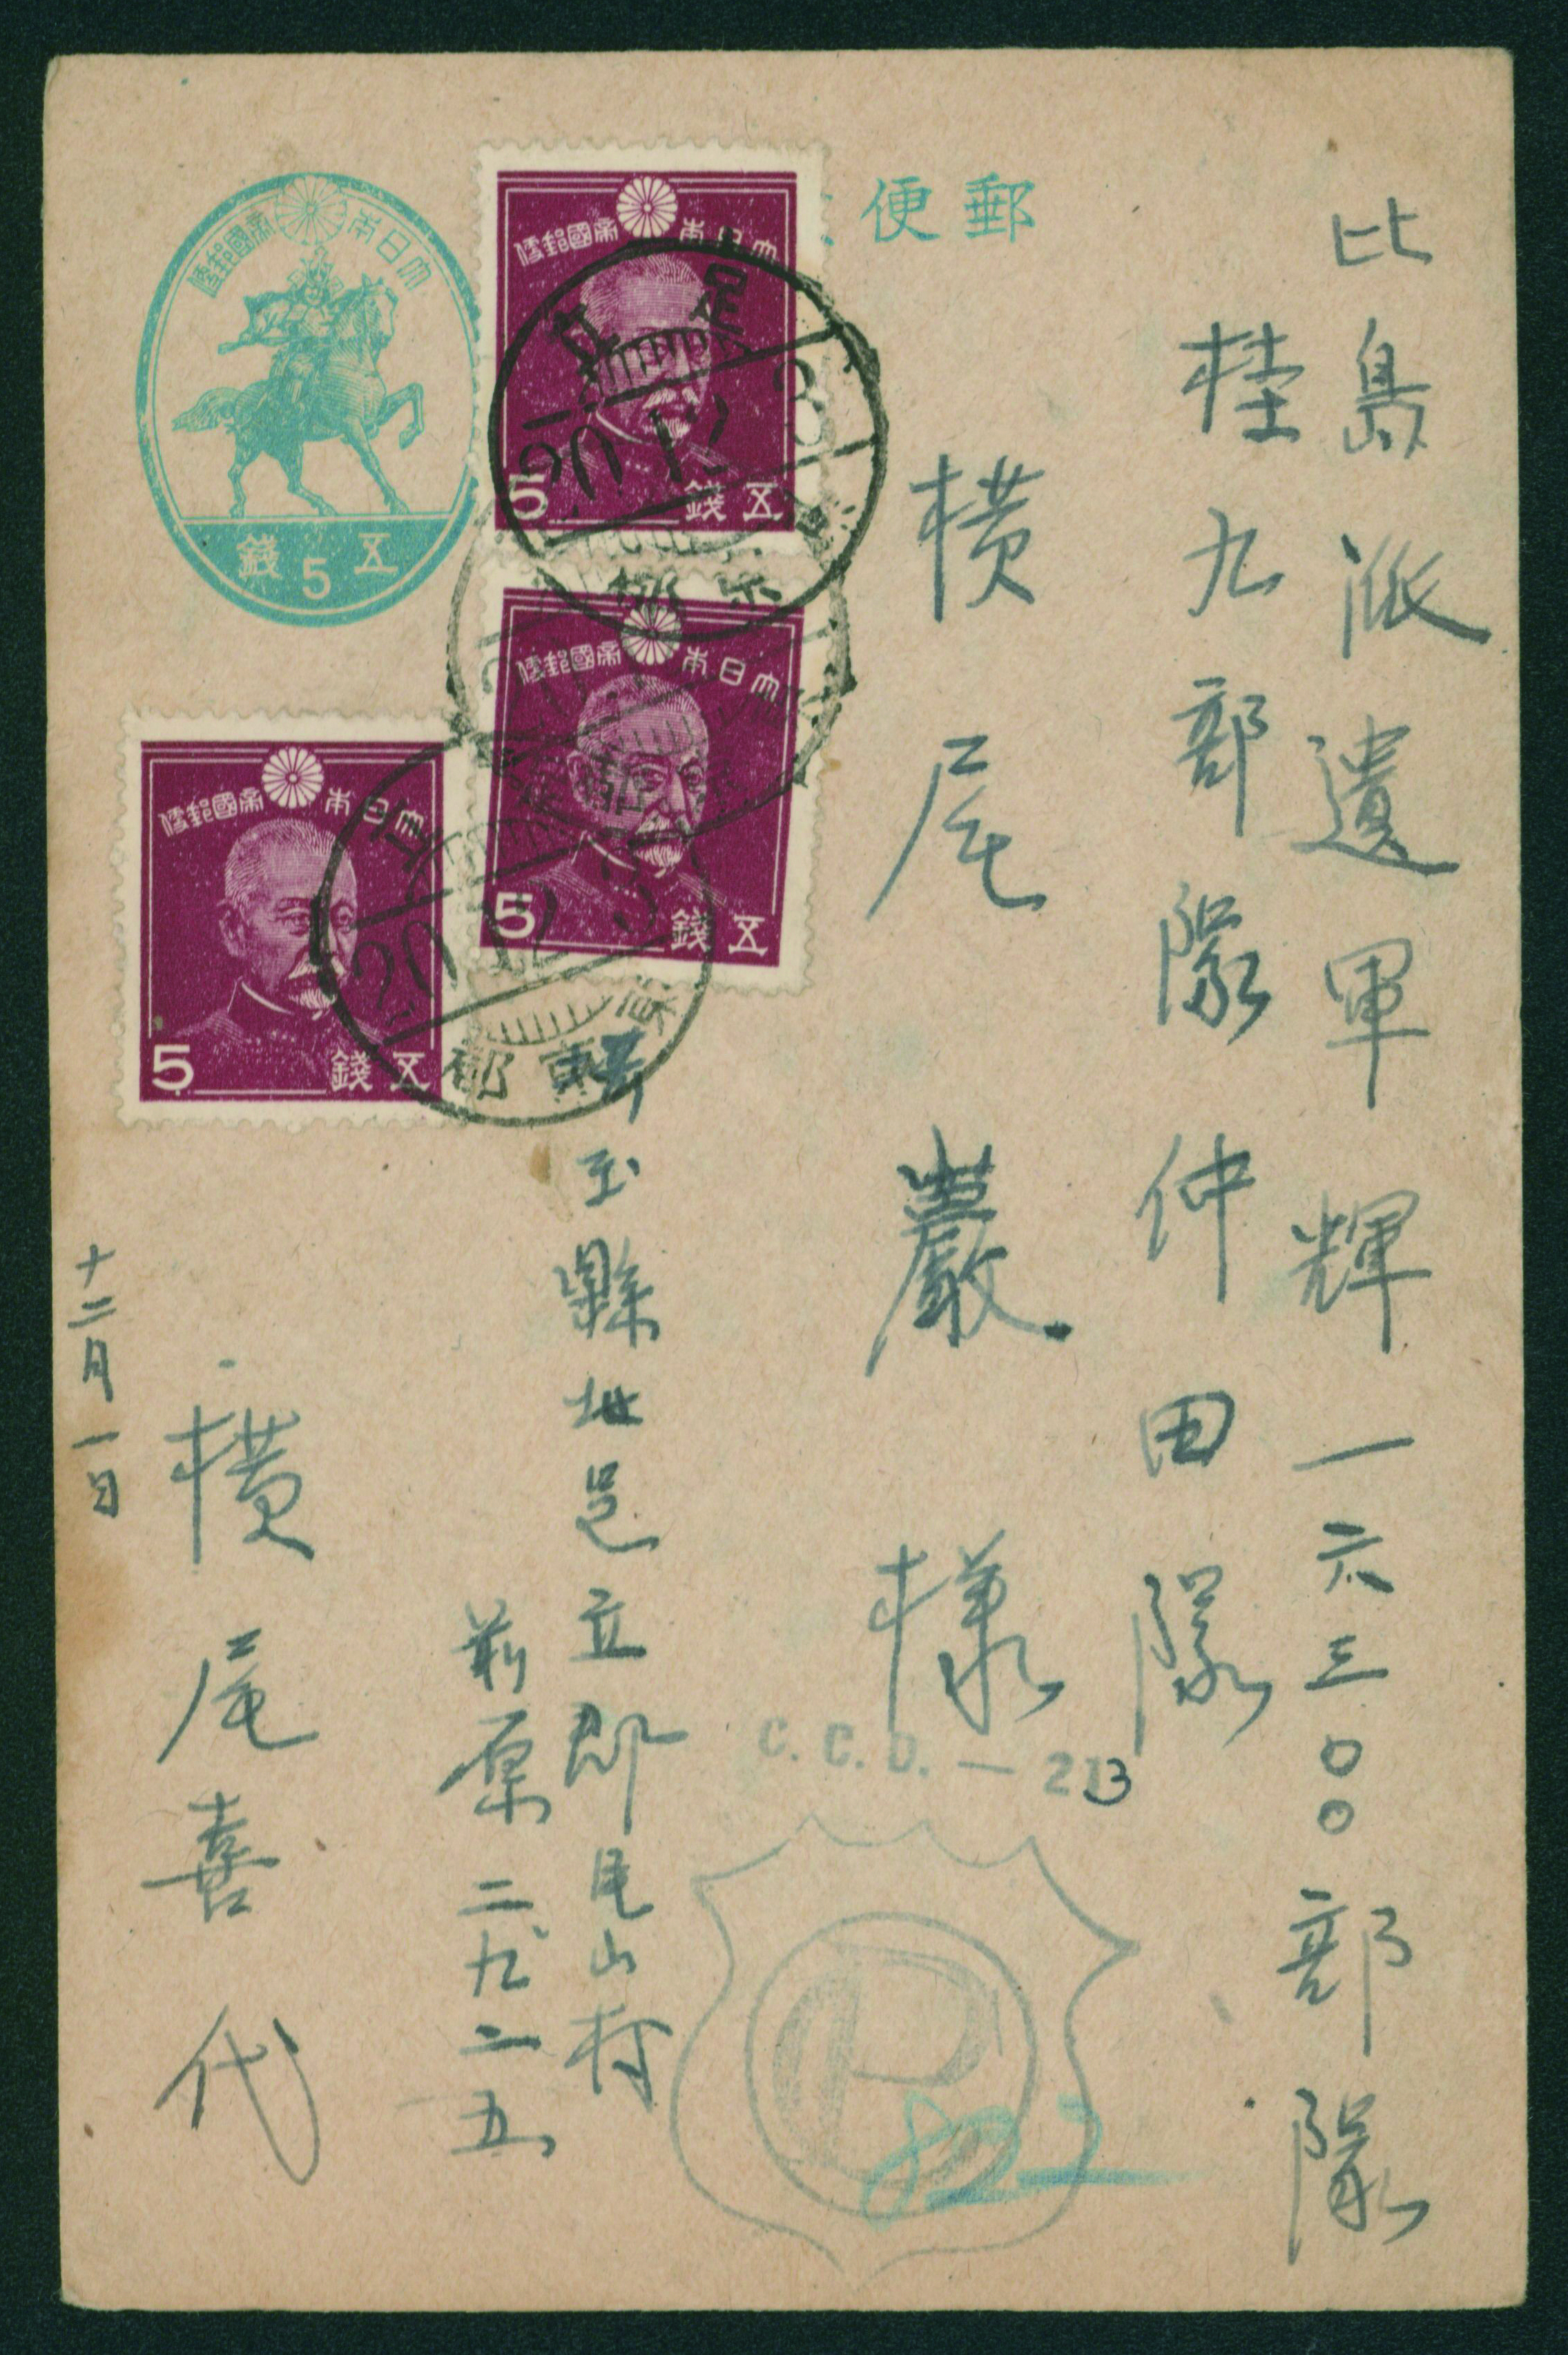 郵便
比島派遣軍輝一六三〇〇部隊
桂九部隊仲田隊
横尾巖様
埼玉縣北足立郡尾山村
前原二九二五
横尾喜代
十二月一日
大日本帝國郵便
五錢
5
大日本帝國郵便
5
五錢
大日本帝國郵便
5
五錢
大日本帝國郵便
5
五錢
足立
20.12.3
20.12.3
C.C.D.—213
P